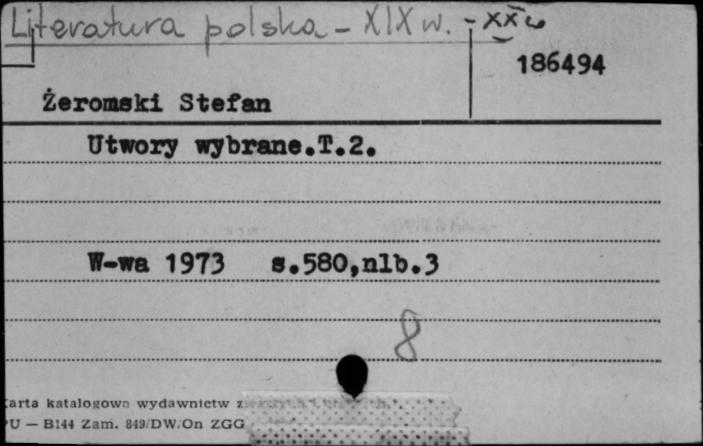 Literatura polska - XIX w. - XX w
186494
Żeromski Stefan
Utwory wybrane.T.2.
W-wa 1973 s.580,nlb.3
8
Karta katalogowa wydawnictw
PU — B144 Zam. 849/DW/On ZGG